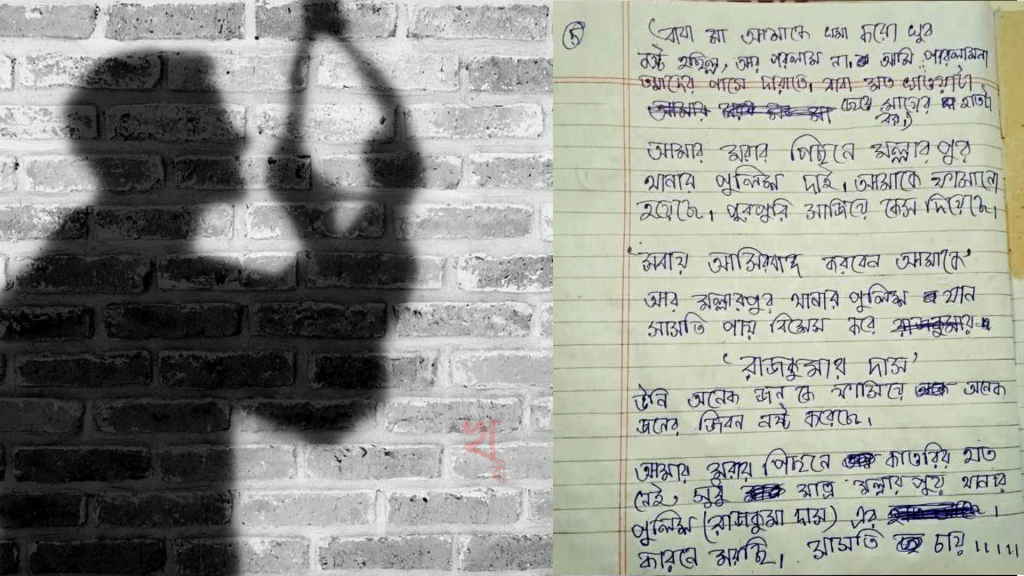 ৫
বাবা মা আমাকে খমা করো খুব
কষ্ট হচ্ছিল, আর পারলাম না, আমি পারলামনা
তমাদের পাসে দারাতে, বাবা মত
আমার মায়ের
আমার মরার পিছনে মল্লারপুর
থানার পুলিশ দাই, আমাকে ফাসানো
হয়েছে। পুরপুরি সাজিয়ে কেস দিয়েছে।
'সবায় আসিরবাদ করবেন আমাকে'
আর মল্লারপুর থানার পুলিশ যান
সাসতি পায় বিসেস করে রাজকুমার
'রাজকুমার দাস'
উনি অনেক জন কে ফাসিয়ে অনেক
জনের জিবন নষ্ট করেছে।
আমার মরার পিছনে কাওরির হাত
নেই, সুধু মাত্র মল্লারপুর থানার
পুলিশ (রাজকুমা দাস) এর ।
কারনে মরছি। সাসতি চায়।।।।।